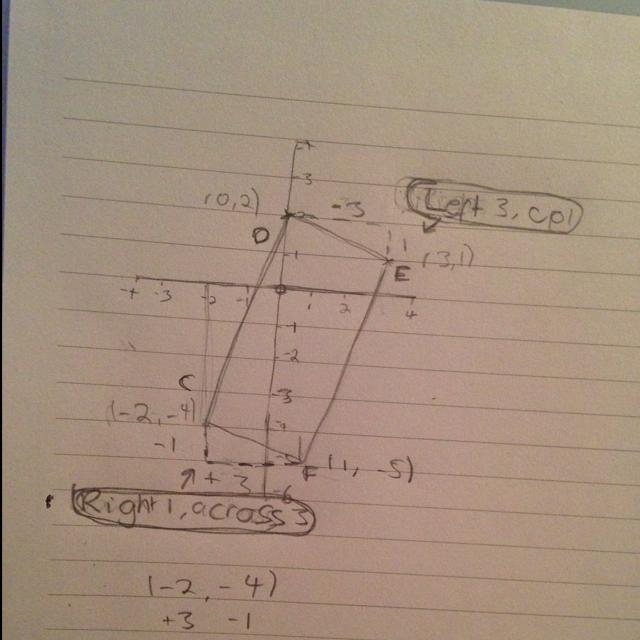 3
(0,2) 2 -3 Left 3, up 1
D
1 1
E (3,1)
-4 -3 -2 -1 0 1 2 4
-1
-2
C -3
(-2,-4)
-1
F (1, -5)
+ 3 -6
Right 1, across 3
(-2, -4)
+3 -1